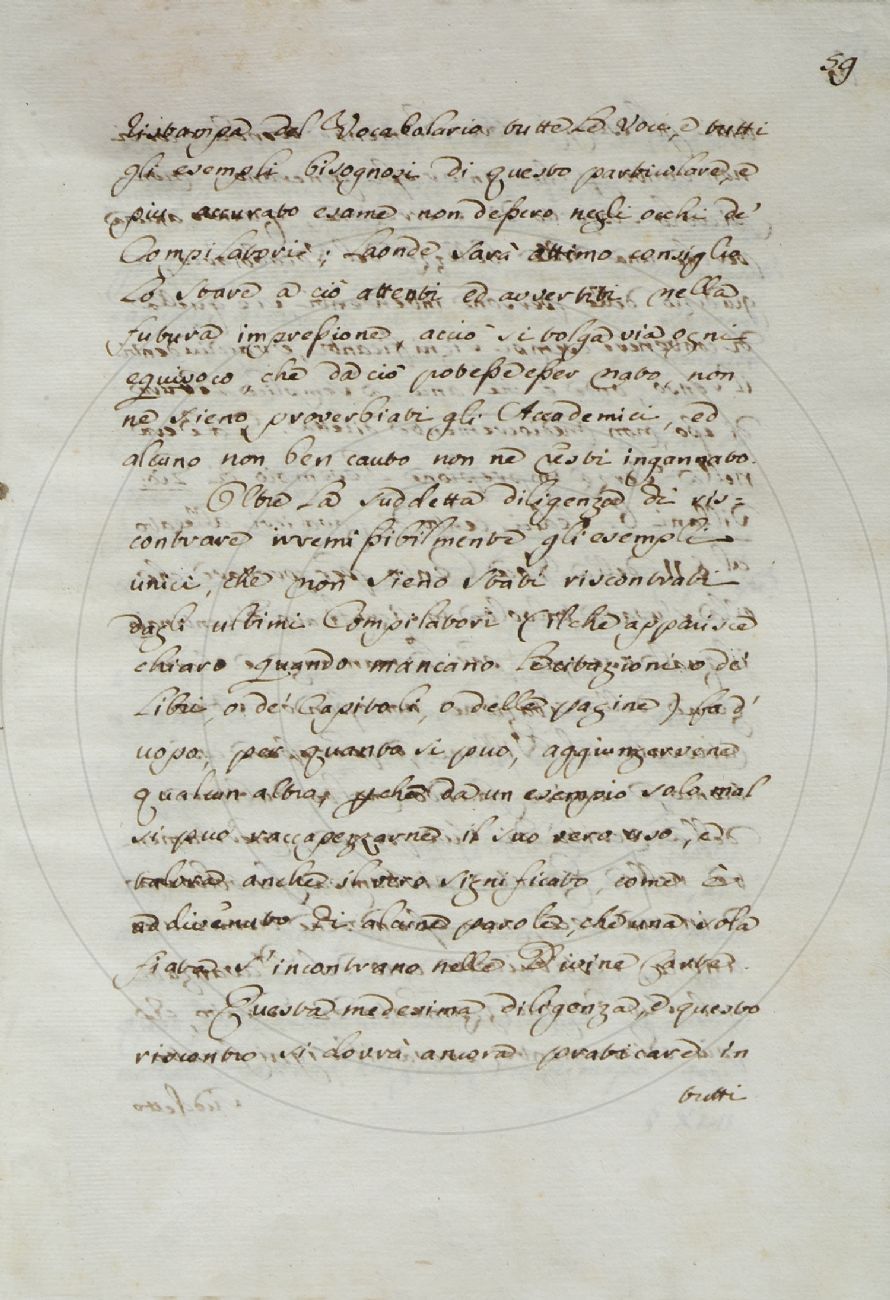 59
ristampa del Vocabolario tutte le voci, e tutti
gli esempli bisognosi di questo particolare, e
più accurato esame non dessero negli occhi de'
Compilatori; laonde sarà ottimo consiglio
lo stare a ciò attenti ed avvertiti nella
futura impressione, acciò si tolga via ogni
equivoco, che da ciò potesse esser nato, non
ne sieno proverbiati gli Accademici, ed
alcuno non ben cauto non ne resti ingannato.
Oltre la suddetta diligenza di ris=
contrare irremissibilmente gli esempli
unici, che non sieno stati riscontrati
dagli ultimi Compilatori (il che apparisce
chiaro quando mancano le citazioni o de'
Libri, o de' Capitoli, o delle pagine) fa d'
uopo, per quanto si può, aggiungervene
qualcun altro, perchè da un esempio solo mal
si può raccapezzarne il suo vero uso, e
talora anche il vero significato, come è
addivenuto di alcune parole, che una sola
fiata s' incontrano nelle Divine Carte.
Questa medesima diligenza, e questo
riscontro si dovrà ancora praticare in
tutti